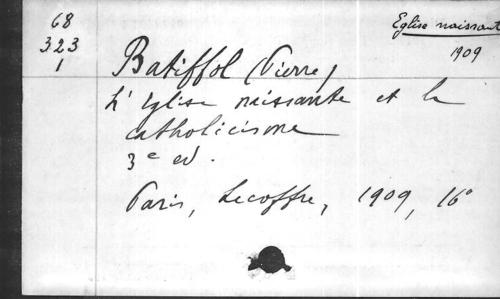 68
323
1
Eglise naissante
1909
Batiffol (Pierre)
L'Eglise naissante et le
catholicisme
3e ed.
Paris, Lecoffre, 1909, 16°